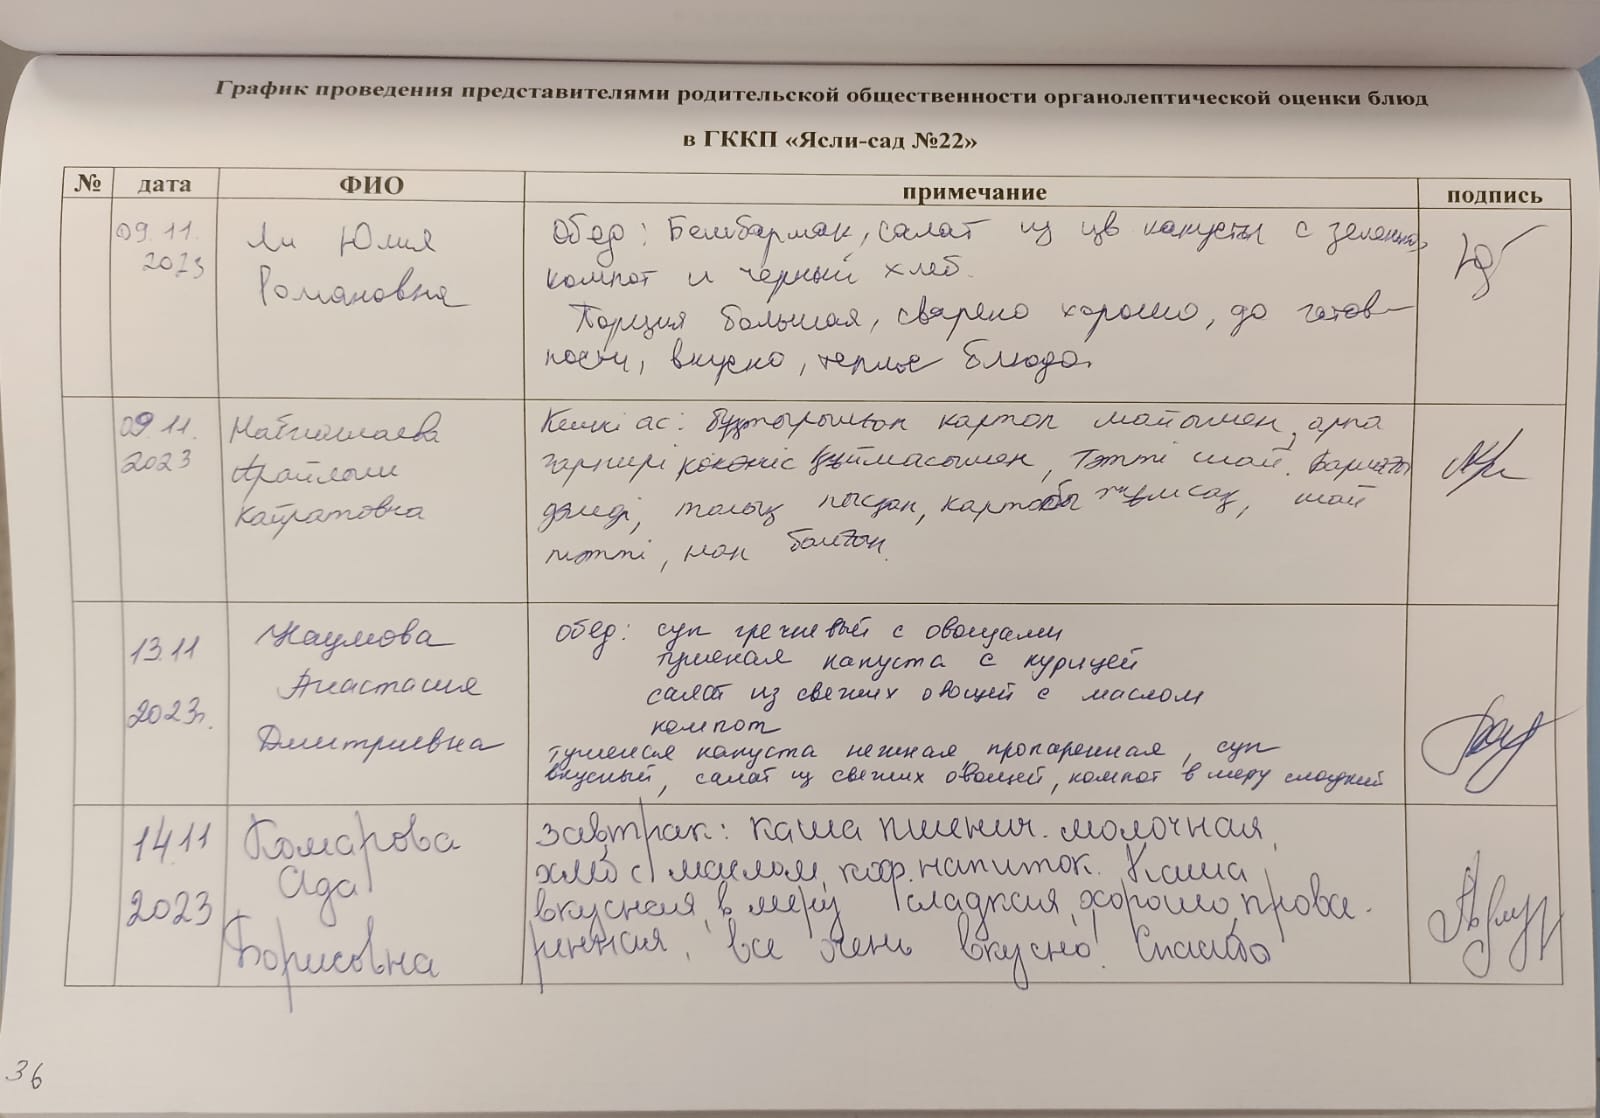 График проведения представителями родительской общественности органолептической оценки блюд
в ГККП «Ясли-сад №22»
№ дата ФИО примечание подпись
09.11.
2023
Ли Юлия
Романовна
Обед: Бешбармак, салат из цв капусты с зеленью,
компот и черный хлеб.
Порция большая, сварено хорошо, до готов-
ности, вкусно, теплые блюда.
09.11.
2023
Арайлым
Кайратовна
Кешкі ас: бұқтырылған картоп майымен, арпа
гарнирі көкөніс құймасымен, Тәтті шай. Барлығы
дәмді, толық пысқан, картобы жұмсақ, шай
тәтті, нан болған.
13.11
2023г.
Наумова
Анастасия
Дмитриевна
обед: суп гречневый с овощами
тушеная капуста с курицей
салат из свежих овощей с маслом
компот
тушеная капуста нежная, пропаренная, суп
вкусный, салат из свежих овощей, компот в меру сладкий
14.11
2023
Комарова
Ада
Борисовна
завтрак: каша пшенич. молочная,
хлеб с маслом, коф. напиток. Каша
вкусная, в меру сладкая, хорошо прова-
ренная, все очень вкусно! Спасибо
36